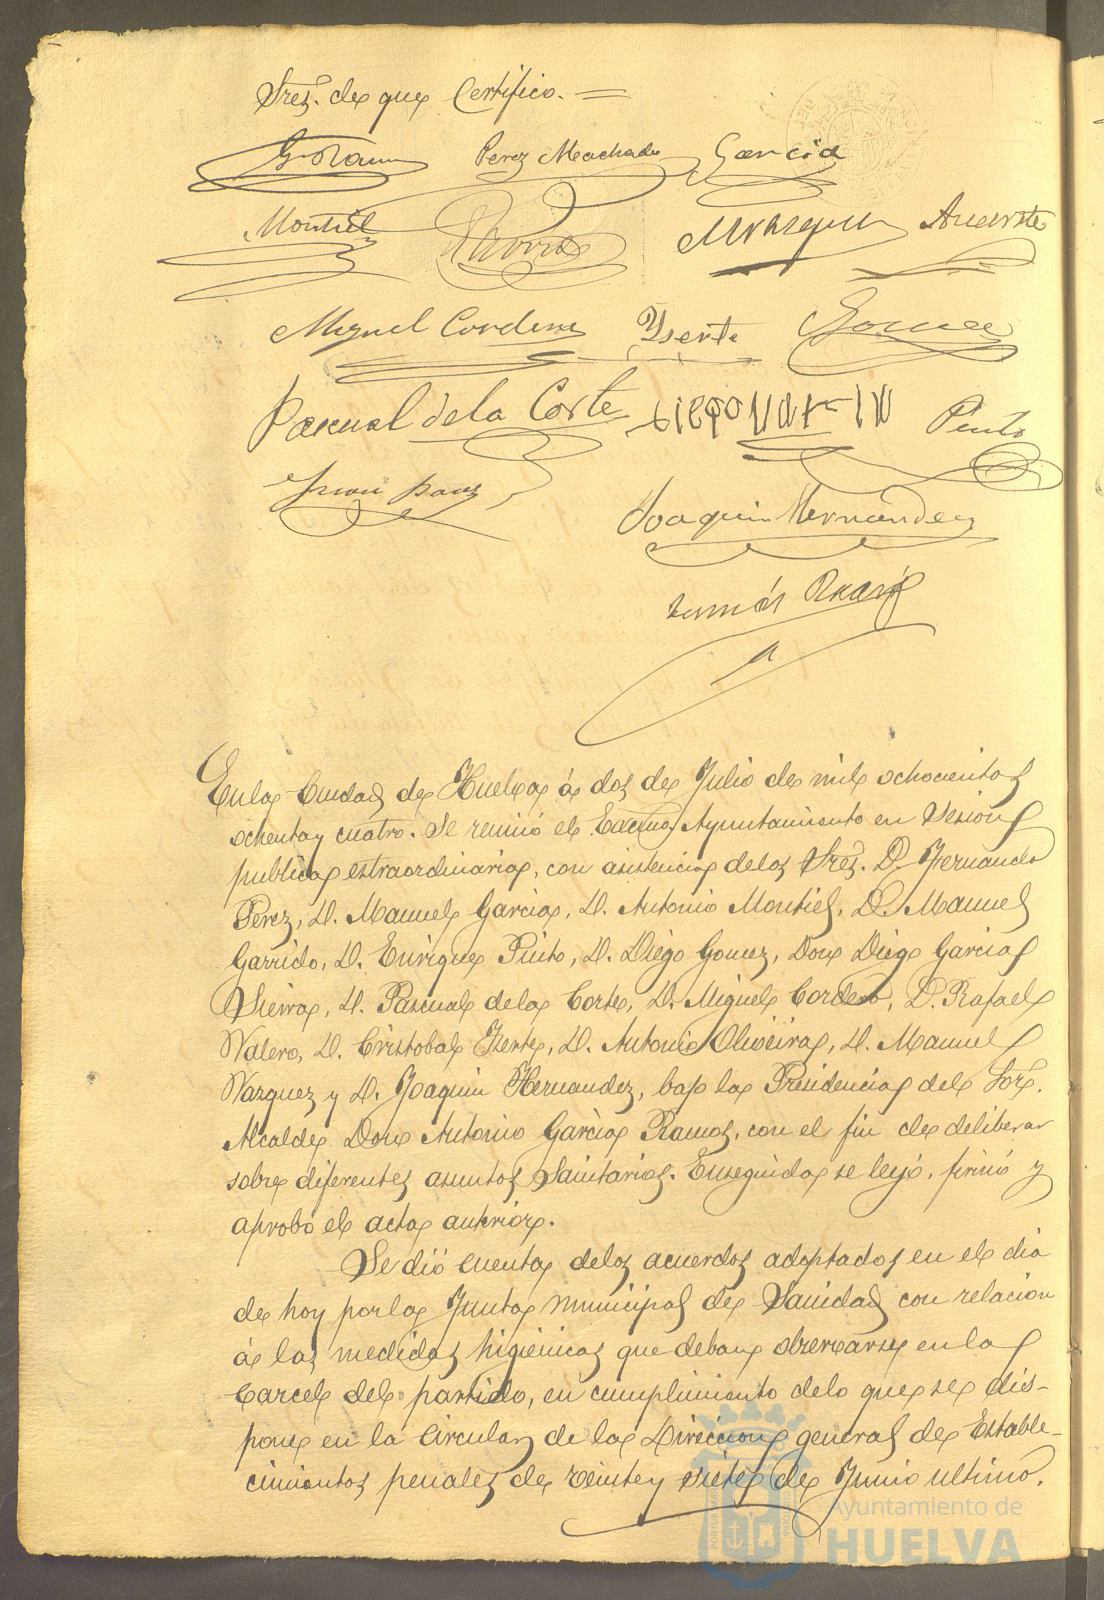 Sres. de que Certifico. =
Perez Machado Garcia
Montiel
Miguel Cordero Yserte Gomez
Pascual de la Corte Pinto
Joaquin Hernandez
En la Ciudad de Huelva á dos de Julio de mil ochocientos
ochenta y cuatro. Se reunió el Excmo. Ayuntamiento en Sesion
publica extraordinaria, con asistencia delos Sres. D. Fernando
Perez, D. Manuel Garcia, D. Antonio Montiel, D. Manuel
Garrido, D. Enrique Pinto, D. Diego Gomez, Don Diego Garcia
Sierra, D. Pascual dela Corte, D. Miguel Cordero, D. Rafael
Valero, D. Cristobal Yserte, D. Antonio Oliveira, D. Manuel
Vazquez y D. Joaquin Hernandez, bajo la Presidencia del Sor.
Alcalde Don Antonio Garcia Ramos, con el fin de deliberar
sobre diferentes asuntos Sanitarios. Enseguida se leyó, firmó y
aprobó el acta anterior.
Se dió cuenta delos acuerdos adoptados en el dia
de hoy por la Junta municipal de Sanidad con relacion
á las medidas higienicas que deban observarse en la
Carcel del partido, en cumplimiento delo que se dis-
pone en la Circular de la Direccion general de Estable-
cimientos penales de veinte y siete de Junio ultimo.
Ayuntamiento de
HUELVA